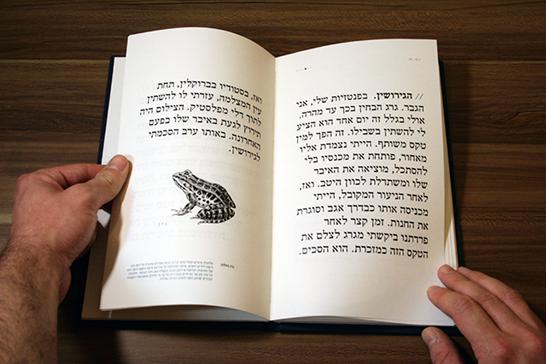 // הגירושין. בפנטזיות שלי, אני
הגבר. גרג הבחין בכך עד מהרה.
אולי בגלל זה יום אחד הוא הציע
לי להשתין בשבילו. זה הפך למין
טקס משותף. הייתי נצמדת אליו
מאחור, פותחת את מכנסיו בלי
להסתכל, מוציאה את האיבר
שלו ומשתדלת לכוון היטב. ואז,
לאחר הניעור המקובל, הייתי
מכניסה אותו כבדרך אגב וסוגרת
את החנות. זמן קצר לאחר
פרדתנו ביקשתי מגרג לצלם את
הטקס הזה כמזכרת. הוא הסכים.
ואז, בסטודיו בברוקלין, תחת
עין המצלמה, עזרתי לו להשתין
לתוך דלי מפלסטיק. הצילום היה
תירוץ לגעת באיבר שלו בפעם
האחרונה. באותו ערב הסכמתי
לגירושין.